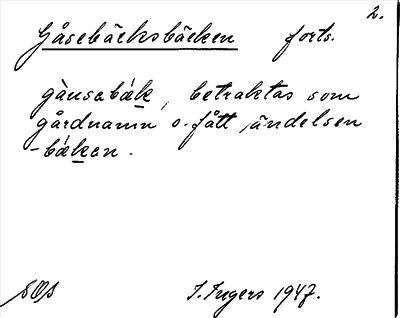 2.
Gåsebäcksbäcken forts.
gàusabǽk, betraktas som
gårdnamn o. fått ändelsen
-bǽken.
SOS I. Ingers 1947.